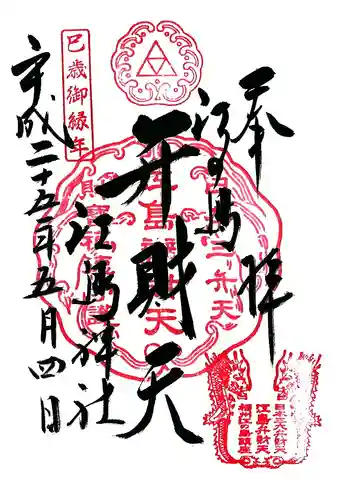 奉拝
江島
弁財天
江島神社
平成二十五年五月四日
巳歳御縁年
日本三大弁財天
江島弁財天
相州江の島鎮座